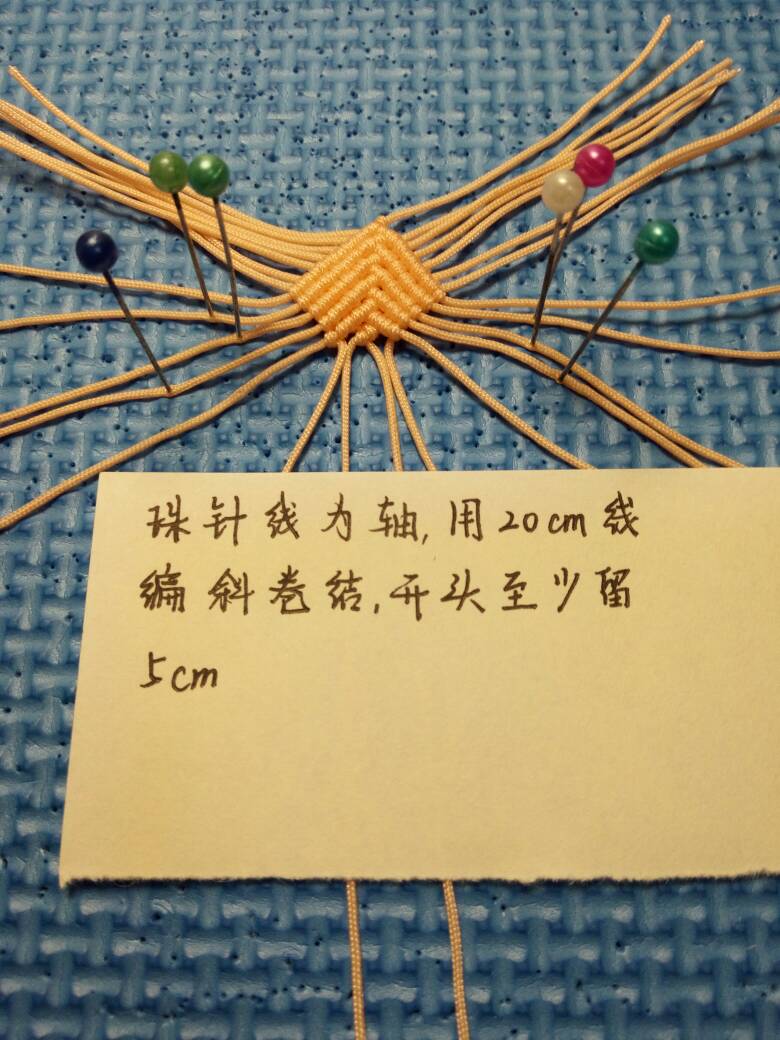 珠针线为轴,用20cm线
编斜卷结,开头至少留
5cm